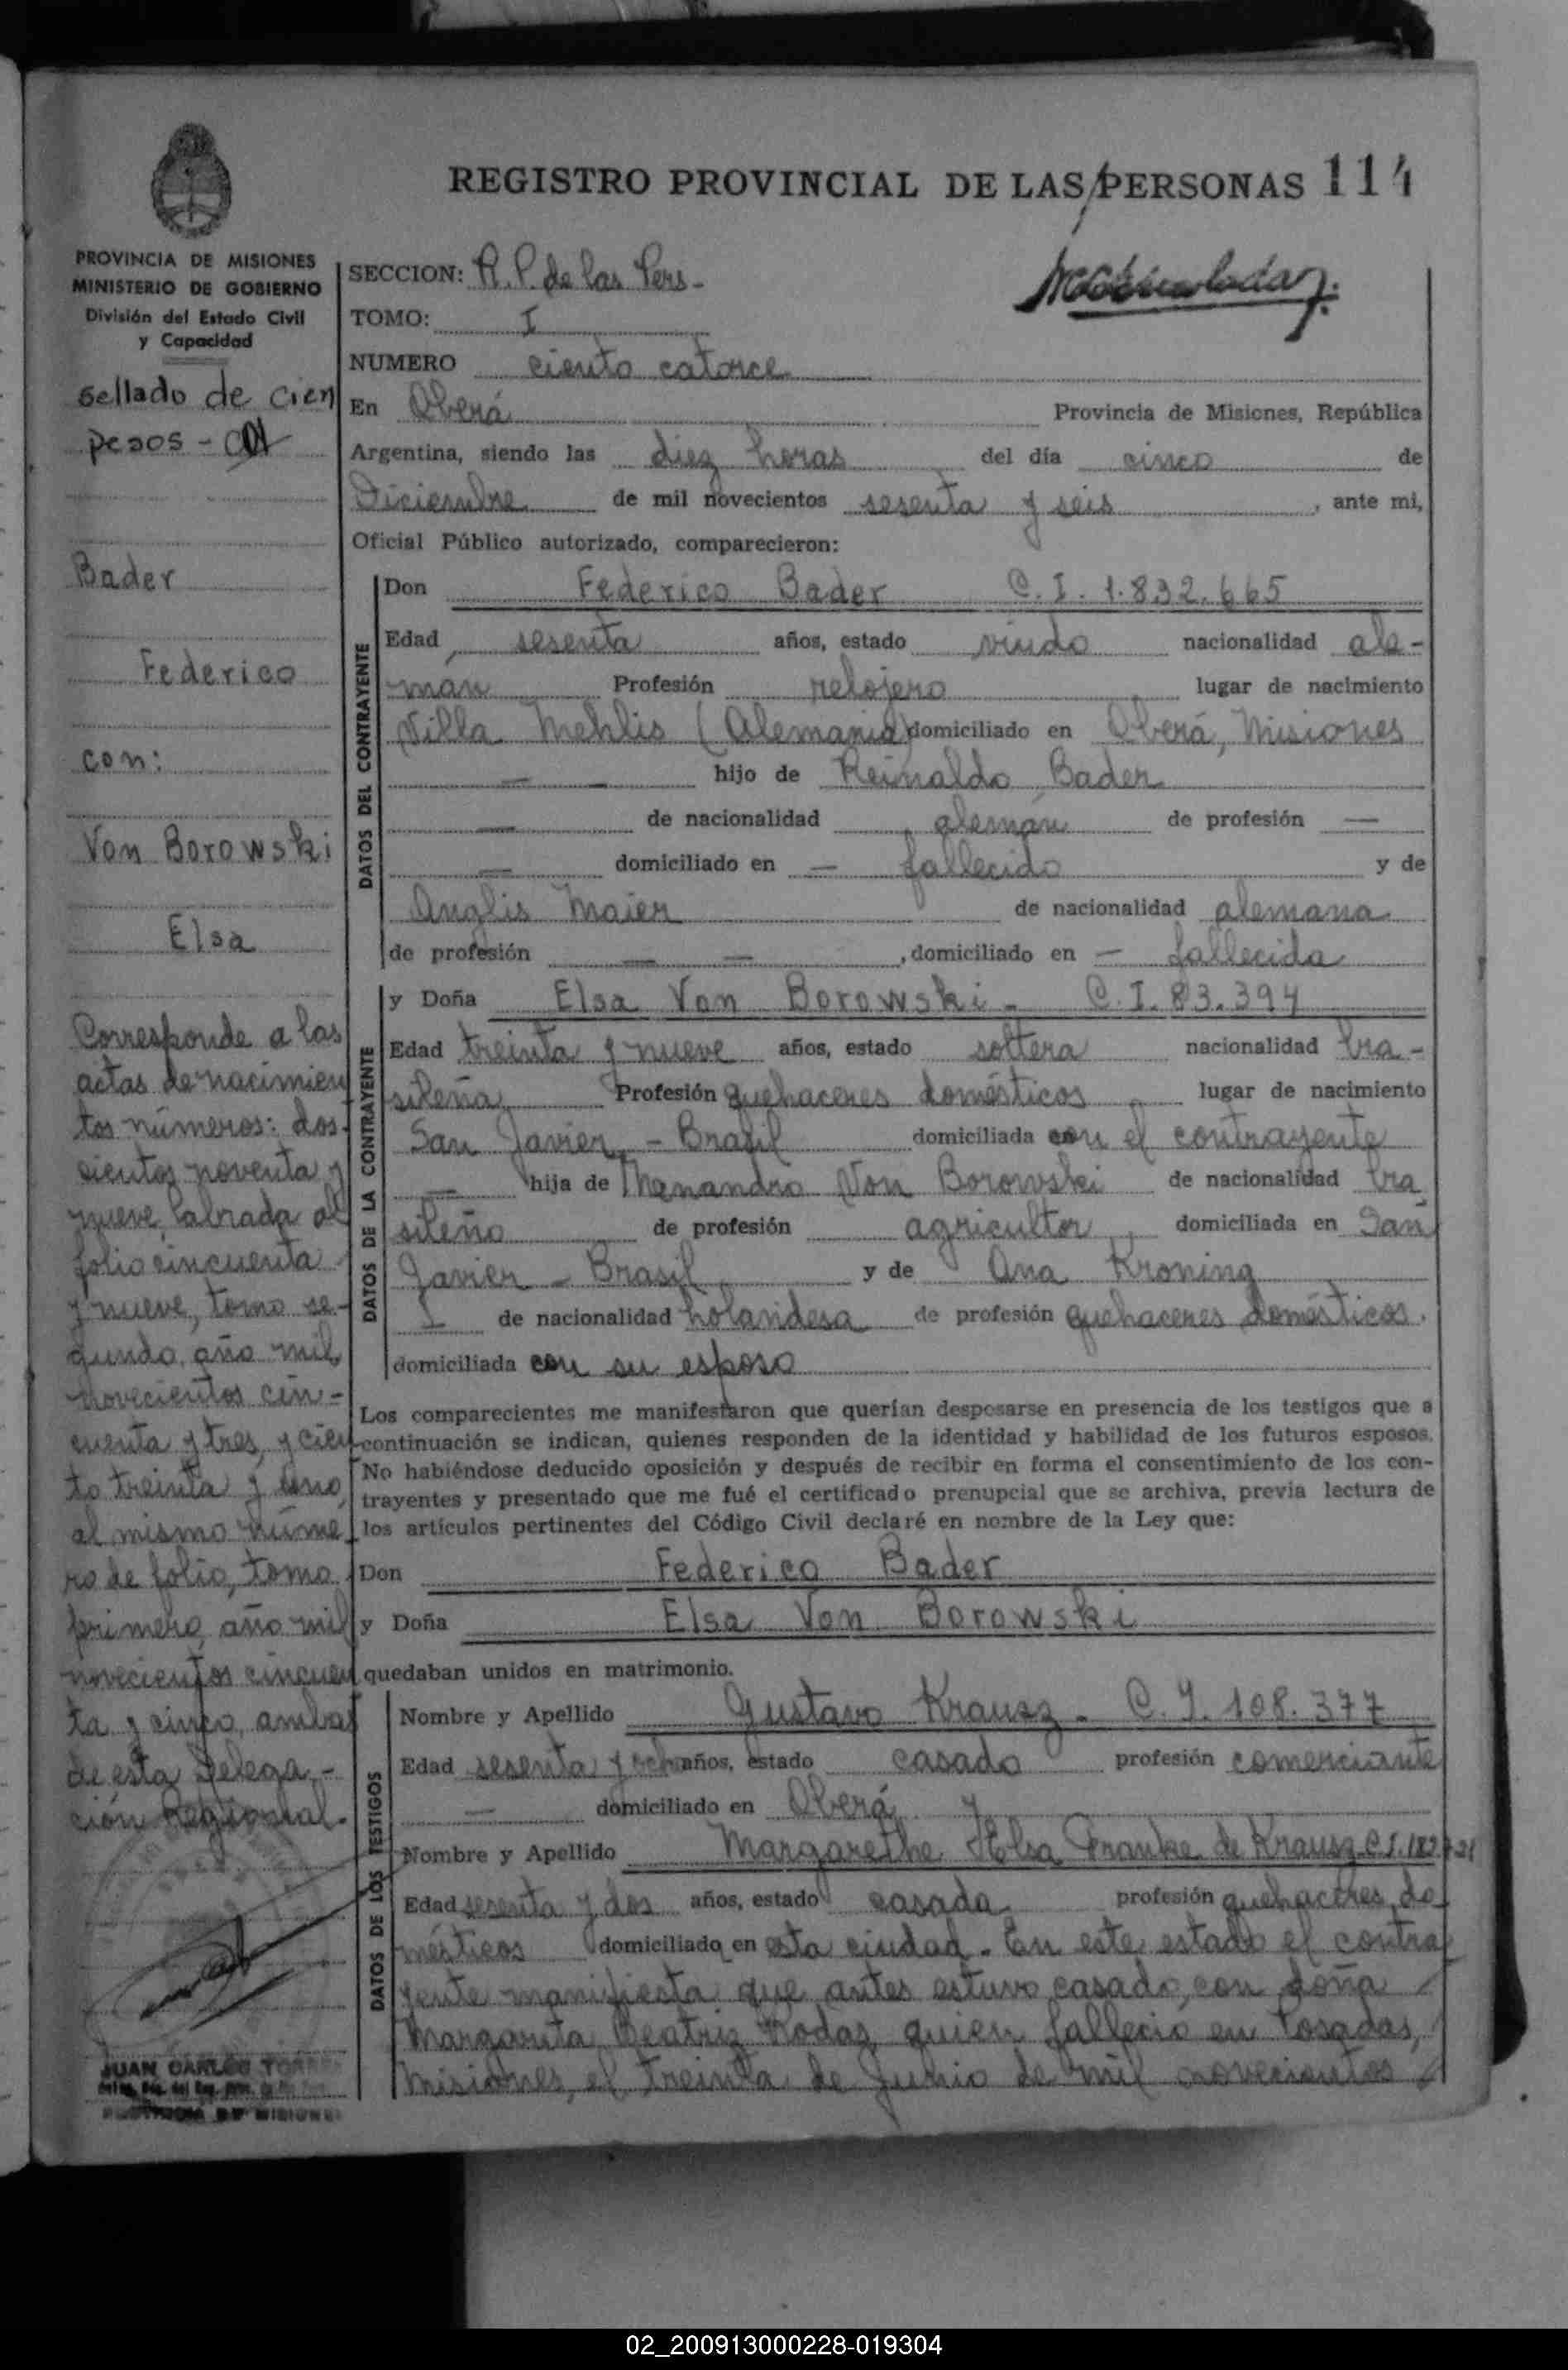 REGISTRO PROVINCIAL DE LAS PERSONAS 114
PROVINCIA DE MISIONES
MINISTERIO DE GOBIERNO
División del Estado Civil
y Capacidad
sellado de cien
pesos -
Bader
Federico
con:
Von Borowski
Elsa
Corresponde a las
actas de nacimien
tos números: dos-
cientos noventa y
nueve, labrada al
folio cincuenta
y nueve, tomo se-
gundo, año mil
novecientos cin-
cuenta y tres, y cien
to treinta y uno,
al mismo núme
ro de folio, tomo
primero, año mil
novecientos cincuen
ta y cinco, ambas
de esta Delega-
ción Regional.
JUAN CARLOS TORRES
PROVINCIA DE MISIONES
SECCION: R. P. de las Pers-
TOMO: I
NUMERO ciento catorce
En Oberá Provincia de Misiones, República
Argentina, siendo las diez horas del día cinco de
Diciembre de mil novecientos sesenta y seis, ante mi,
Oficial Público autorizado, comparecieron:
DATOS DEL CONTRAYENTE
Don Federico Bader C. I. 1.832.665
Edad sesenta años, estado viudo nacionalidad ale-
man Profesión relojero lugar de nacimiento
Villa Mehlis (Alemania) domiciliado en Oberá, Misiones
— — hijo de Reinaldo Bader
— de nacionalidad alemán de profesión —
— domiciliado en — fallecido y de
Anglis Maier de nacionalidad alemana
de profesión — — , domiciliado en — fallecida
DATOS DE LA CONTRAYENTE
y Doña Elsa Von Borowski - C. I. 83.394
Edad treinta y nueve años, estado soltera nacionalidad bra-
sileña Profesión quehaceres domésticos lugar de nacimiento
San Javier - Brasil domiciliada con el contrayente
— hija de Menandro Von Borowski de nacionalidad bra
sileño de profesión agricultor domiciliada en San
Javier - Brasil y de Ana Kroning
de nacionalidad holandesa de profesión quehaceres domésticos.
domiciliada con su esposo
Los comparecientes me manifestaron que querían desposarse en presencia de los testigos que a
continuación se indican, quienes responden de la identidad y habilidad de los futuros esposos.
No habiéndose deducido oposición y después de recibir en forma el consentimiento de los con-
trayentes y presentado que me fué el certificado prenupcial que se archiva, previa lectura de
los artículos pertinentes del Código Civil declaré en nombre de la Ley que:
Don Federico Bader
y Doña Elsa Von Borowski
quedaban unidos en matrimonio.
DATOS DE LOS TESTIGOS
Nombre y Apellido Gustavo Krausz - C. I. 108.377
Edad sesenta y ocho años, estado casado profesión comerciante
— domiciliado en Oberá y
Nombre y Apellido Margarethe Elsa Franke de Krausz C.I.
Edad sesenta y dos años, estado casada profesión quehaceres do
mésticos domiciliada en esta ciudad. En este estado el contra
yente manifiesta que antes estuvo casado, con doña
Margarita Beatriz Rodaz quien falleció en Posadas,
Misiones, el treinta de Junio de mil novecientos
02_200913000228-019304